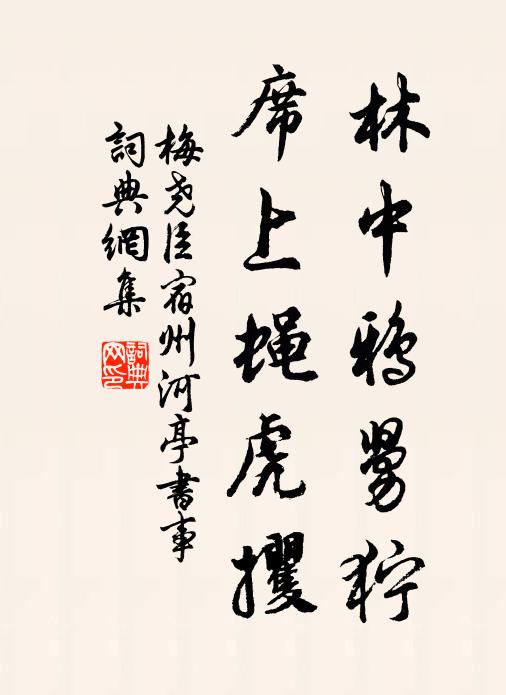 林中鸦舅狞
席上蝇虎攫
梅尧臣宿州河亭書事
詞典網集
詞典网印